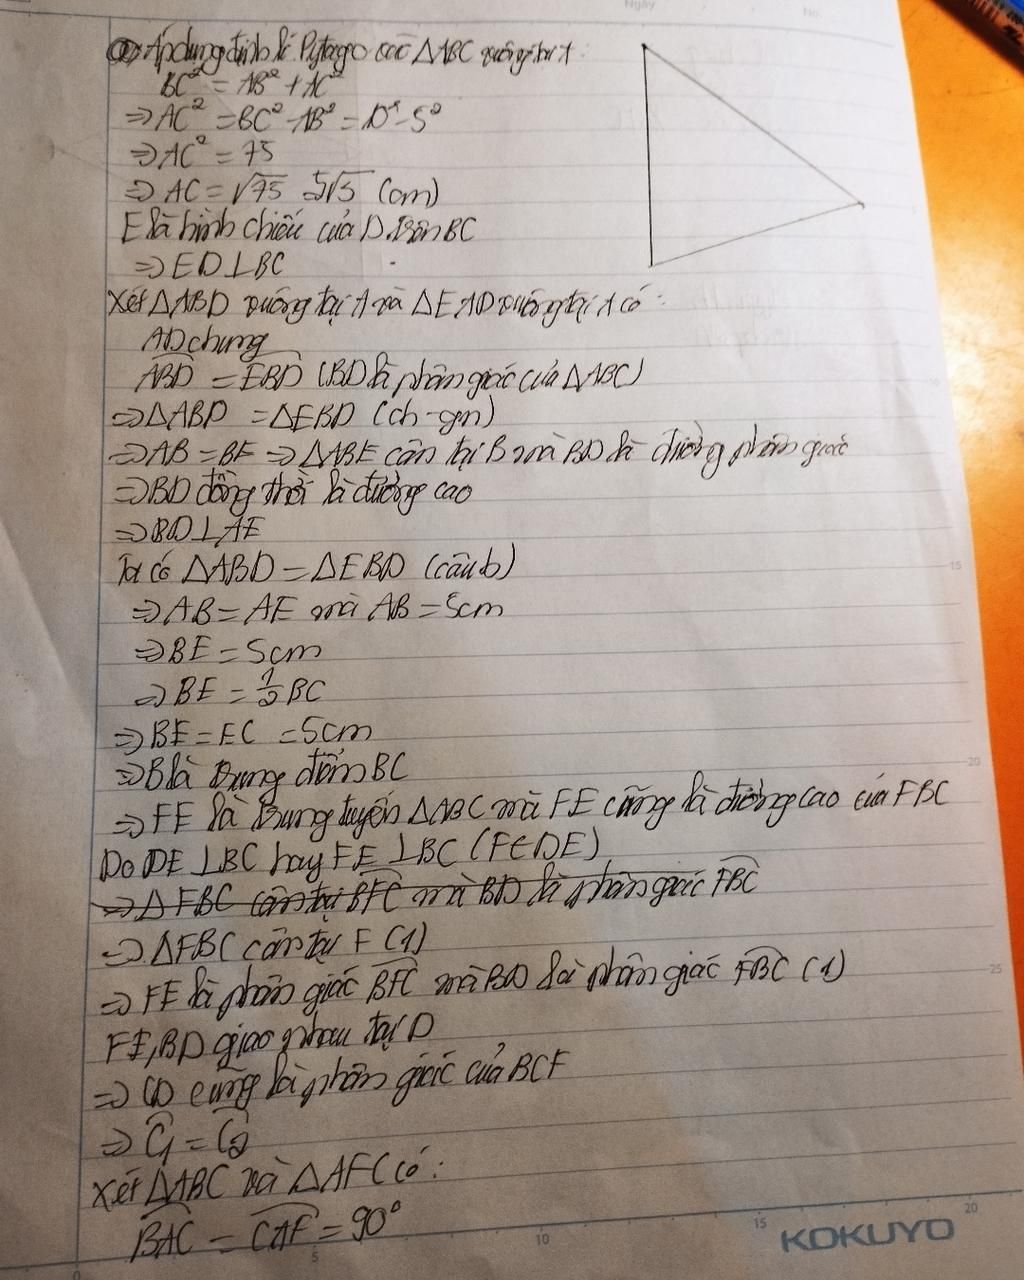 Ngày
No.
a) Áp dụng định lí Pytago cào ΔABC vuông tại A :
BC² = AB² + AC²
⇒ AC² = BC² - AB² = 10² - 5²
⇒ AC² = 75
⇒ AC = √75 5√3 (cm)
E là hình chiếu của D trên BC
⇒ ED ⊥ BC
Xét ΔABD vuông tại A và ΔEAD vuông tại A có :
AD chung
ABD = EBD (BD là phân giác của ΔABC)
⇒ ΔABD = ΔEBD (ch - gn)
⇒ AB = BE ⇒ ΔABE cân tại B mà BD là đường phân giác
⇒ BD đồng thời là đường cao
⇒ BD ⊥ AE
Ta có ΔABD = ΔEBD (câu b)
⇒ AB = AE mà AB = 5cm
⇒ BE = 5cm
⇒ BE = 1/2 BC
⇒ BE = EC = 5cm
⇒ B là trung điểm BC
⇒ FE là trung tuyến ΔABC mà FE cũng là đường cao của FBC
Do DE ⊥ BC hay FE ⊥ BC (F∈DE)
⇒ ΔFBC cân tại BFC mà BD là phân giác FBC
⇒ ΔFBC cân tại F (1)
⇒ FE là phân giác BFC mà BD là phân giác FBC (1)
FE, BD giao nhau tại D
⇒ CD cũng là phân giác của BCF
⇒ C₁ = C₂
Xét ΔABC và ΔAFC có :
BAC = CAF = 90°
15
20
25
0 5 10 15 20
KOKUYO